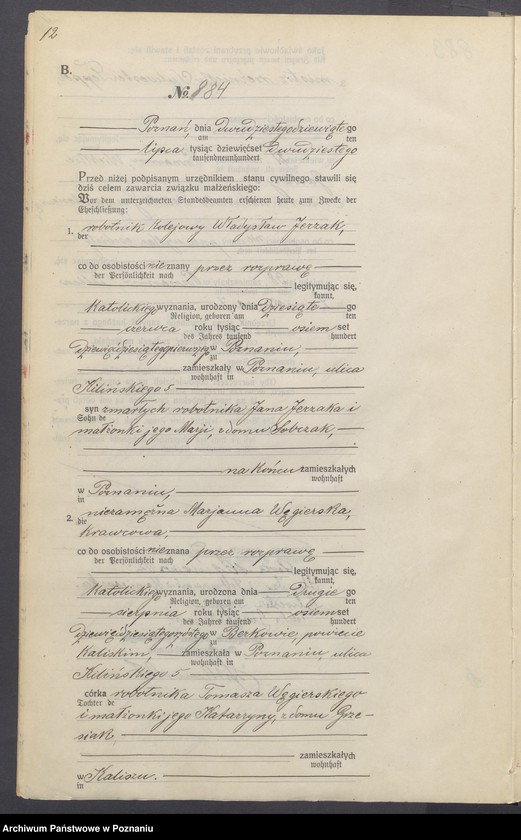 12
B.
No. 884
Poznań, dnia dwudziestegodziewiątego
am ten
lipca tysiąc dziewięćset dwudziestego
tausendneunhundert
Przed niżej podpisanym urzędnikiem stanu cywilnego stawili się
dziś celem zawarcia związku małżeńskiego:
Vor dem unterzeichneten Standesbeamten erschienen heute zum Zwecke der
Eheschließung:
1. robotnik kolejowy Władysław Jerzak,
der
co do osobistości nieznany przez rozprawę
der Persönlichkeit nach
legitymując się,
kannt,
katolickiego wyznania, urodzony dnia dziesiątego
Religion, geboren am ten
czerwca roku tysiąc osiemset
des Jahres tausend hundert
dziewięćdziesiątegopierwszego w Poznaniu,
zu
zamieszkały w Poznaniu, ulica
wohnhaft in
Kilińskiego 5
syn zmarłych robotnika Jana Jerzaka i
Sohn de
małżonki jego Marji, z domu Sobczak,
na końcu zamieszkałych
wohnhaft
w Poznaniu,
in
2. niezamężna Marjanna Węgierska,
die
krawcowa,
co do osobistości nieznana przez rozprawę
der Persönlichkeit nach
legitymując się,
kannt,
katolickiego wyznania, urodzona dnia drugiego
Religion, geboren am ten
sierpnia roku tysiąc osiemset
des Jahres tausend hundert
dziewięćdziesiątegoszóstego w Berkowie, powiecie
zu
Kaliskim zamieszkała w Poznaniu, ulica
wohnhaft in
Kilińskiego 5
córka robotnika Tomasza Węgierskiego
Tochter de
i małżonki jego Katarzyny, z domu Grze-
siak,
zamieszkałych
wohnhaft
w Kaliszu.
in
Archiwum Państwowe w Poznaniu